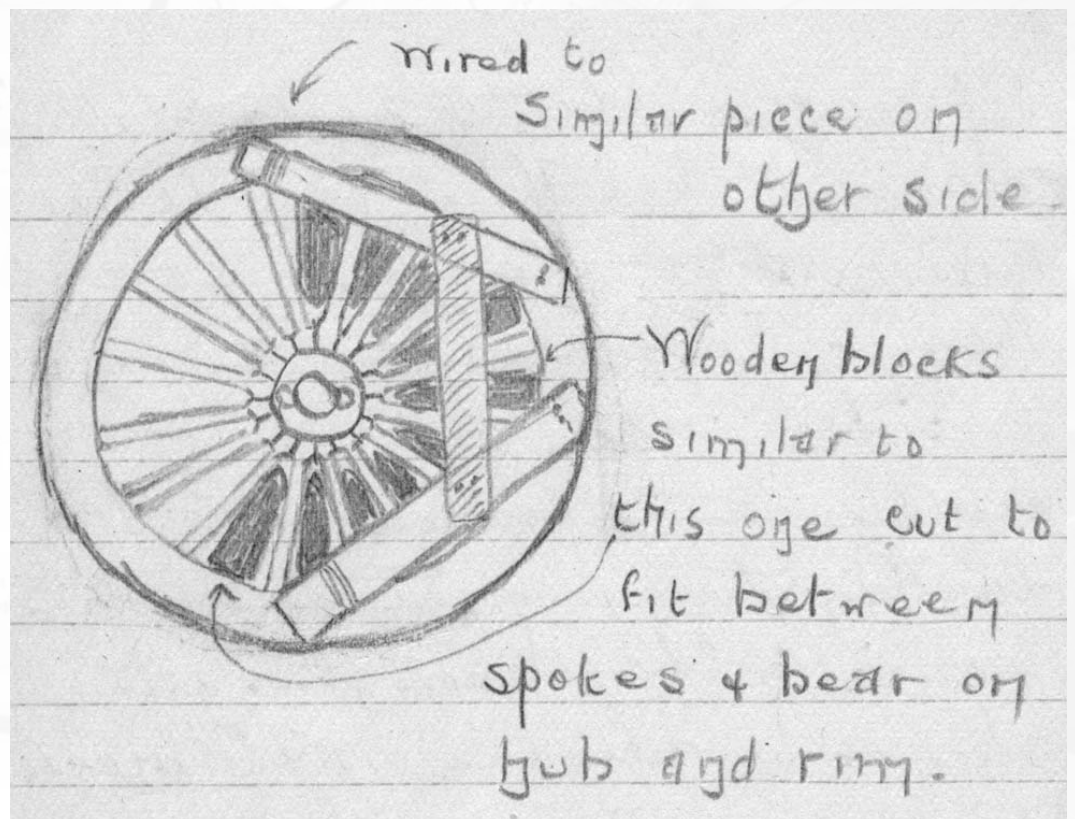 Wired to
Similar piece on
other side.
Wooden blocks
similar to
this one cut to
fit between
spokes & bear on
hub and rim.